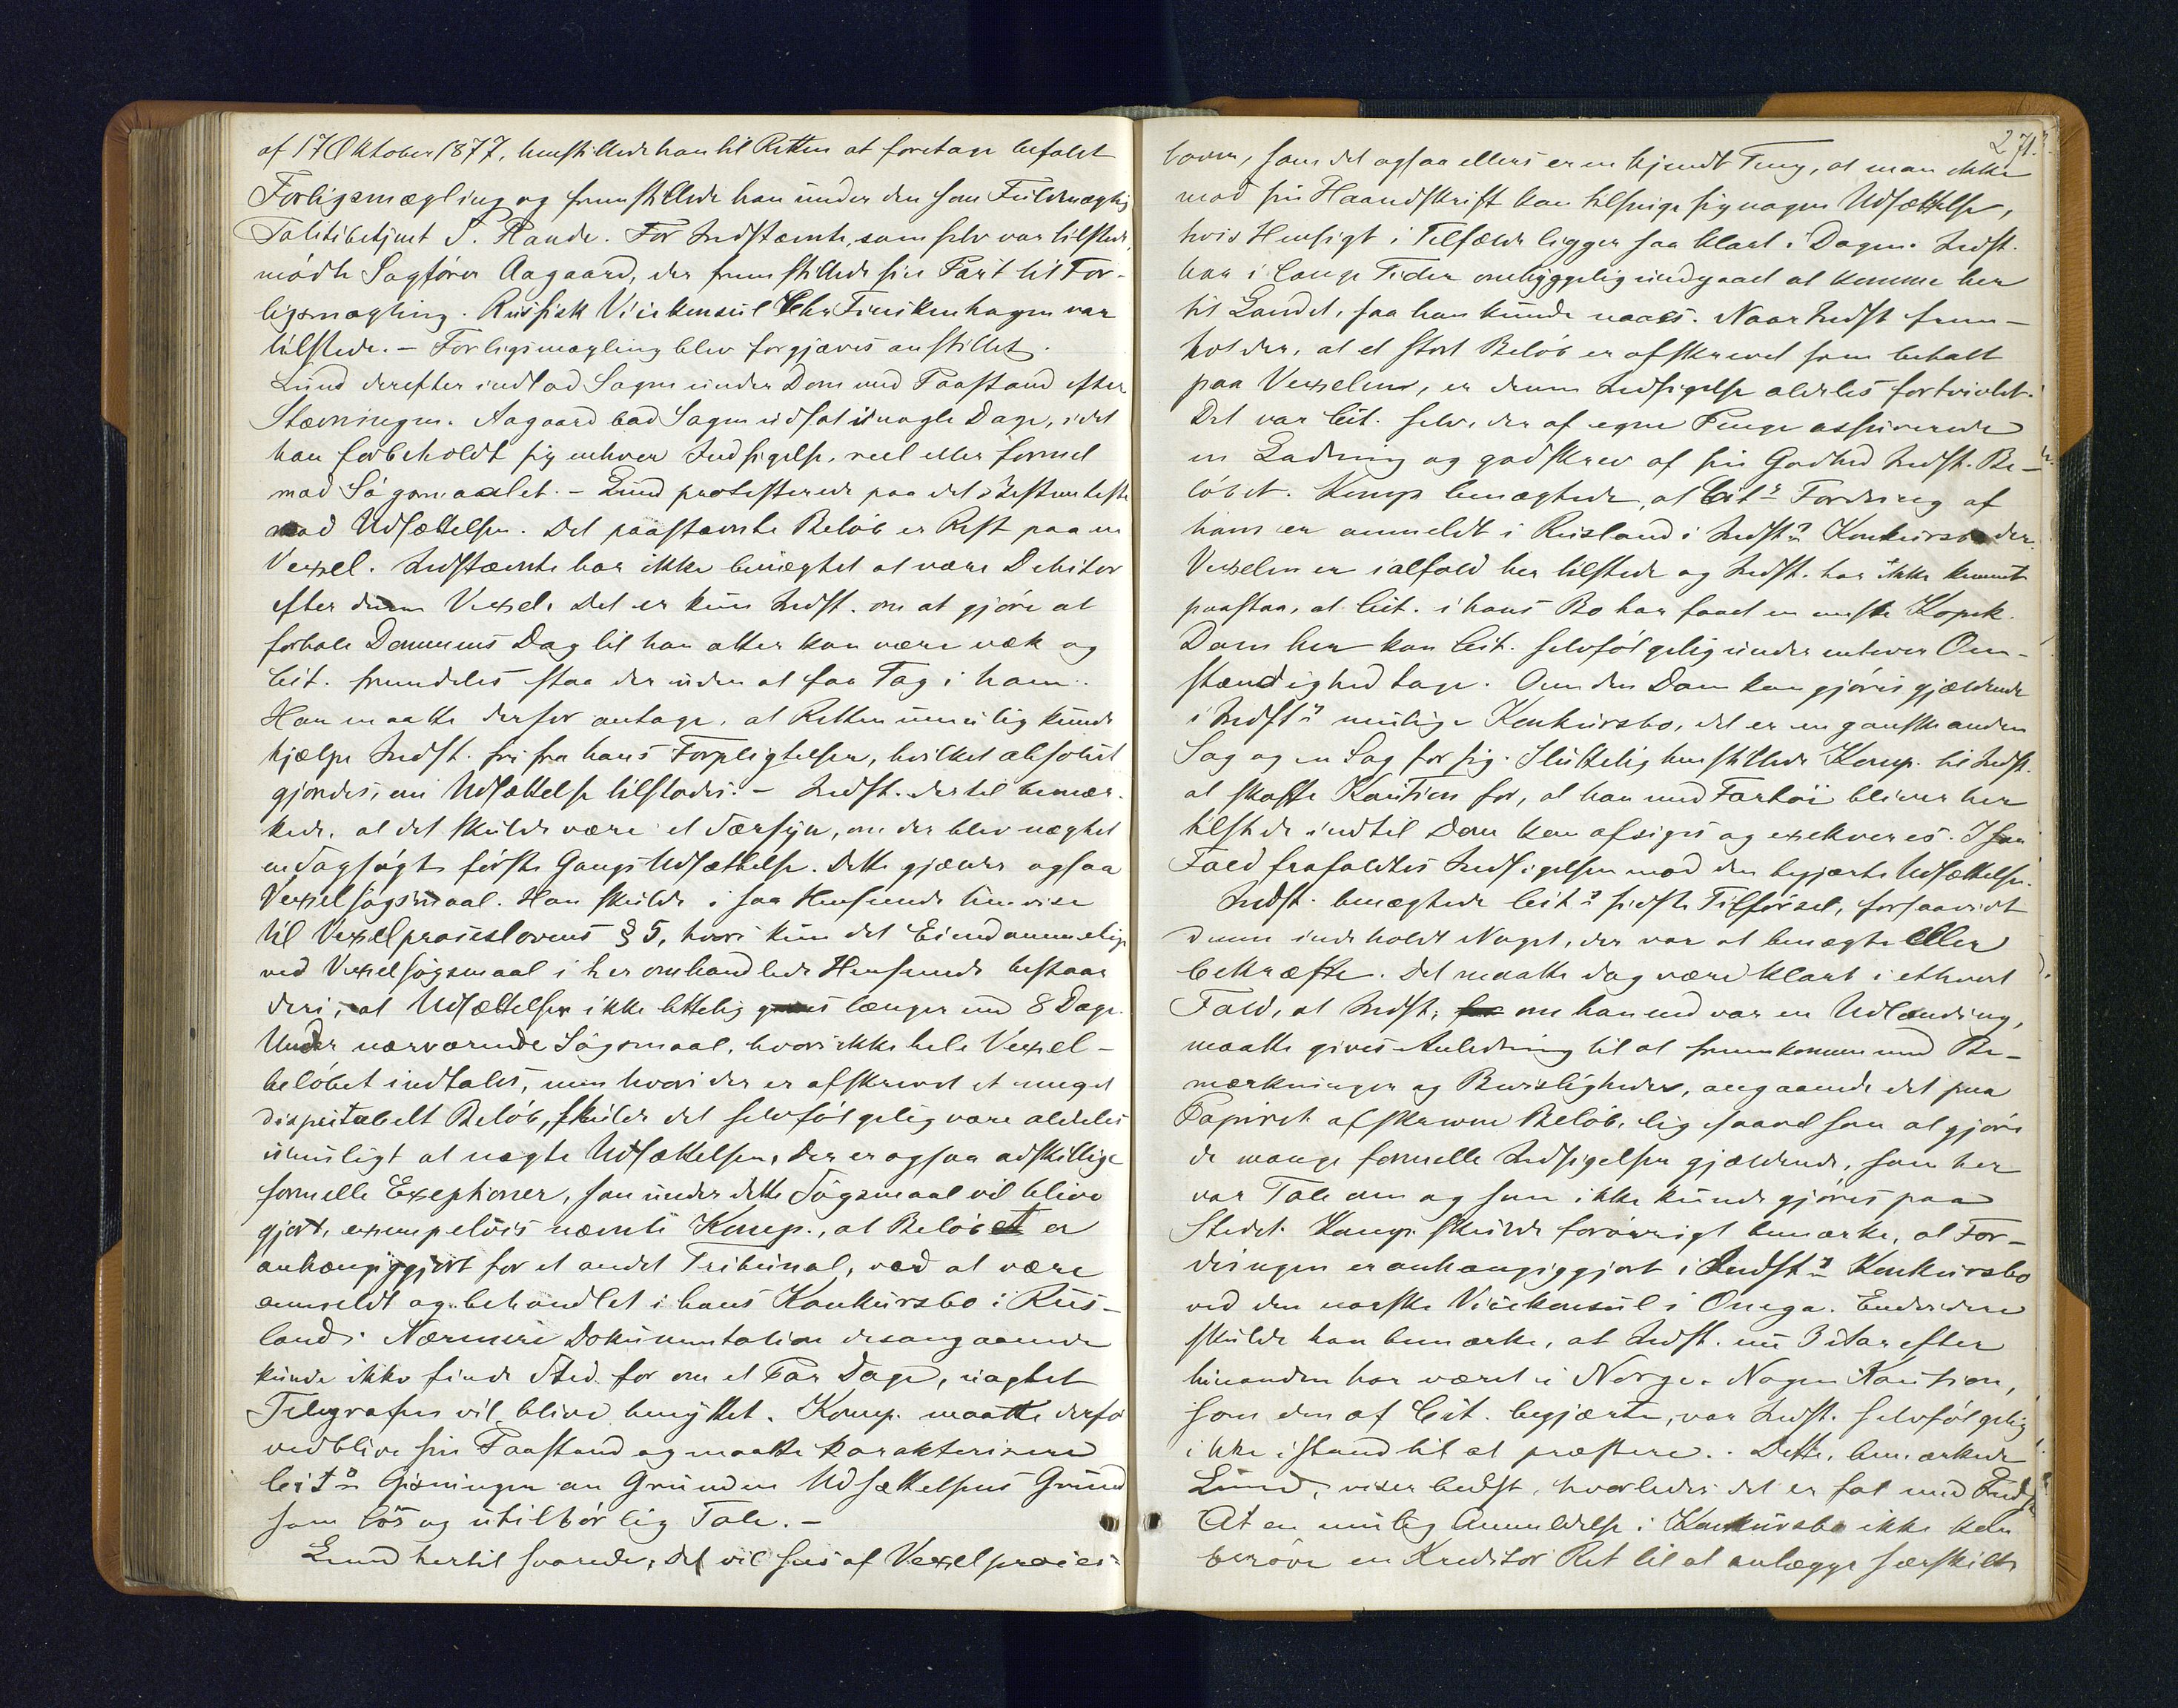 af 17 Oktober 1877, henstillede han til Retten at foretage befalet
Forligsmægling og fremstillede han under den som Fuldmægtig
Politibetjent S. Rande. For Indstævnte, som selv var tilstede,
mødte Sagfører Aagaard, der fremstillede sin Part til For-
ligsmægling. Russisk Vicekonsul Chr Finckenhagen var
tilstede. – Forligsmægling blev forgjæves anstillet.
Lund derefter indlod Sagen under Dom med Paastand efter
Stævningen. Aagaard bad Sagen udsat i nogle Dage, idet
han forbeholdt sig enhver Indsigelse, reel eller formel
mod Søgsmaalet. – Lund protesterede paa det Bestemteste
mod Udsættelsen. Det paastævnte Beløb er Rest paa en
Vexel. Indstævnte har ikke benægtet at være Debitor
efter denne Vexel. Det er kun Indst. om at gjøre at
forhale Dommens Dag til han atter kan være væk og
Cit. fremdeles staa der uden at faa Tag i ham.
Han maatte derfor antage, at Retten umulig kunde
hjælpe Indst. fri fra hans Forpligtelser, hvilket absolut
gjordes, om Udsættelse tilstodes. – Indst. dertil bemær-
kede, at det skulde være et Særsyn, om der blev nægtet
en Sagsøgt første Gangs Udsættelse. Dette gjælder ogsaa
Vexelsøgsmaal. Han skulde i saa Henseende henvise
til Vexelproceslovens § 5, hvori kun det Eiendommelige
ved Vexelsøgsmaal i her omhandlede Henseende bestaar
deri, at Udsættelsen ikke lettelig gives længer end 8 Dage.
Under nærværende Søgsmaal, hvori ikke hele Vexel-
beløbet indtales, men hvori der er afskrevet et meget
disputabelt Beløb, skulde det selvfølgelig være aldeles
umuligt at nægte Udsættelsen. Der er ogsaa adskillige
formelle Exeptioner, som under dette Søgsmaal vil blive
gjort, exempelvis nævnte Komp., at Beløbet er
anhængiggjort for et andet Tribunal, ved at være
anmeldt og behandlet i hans Konkursbo i Rus-
land. Nærmere Dokumentation desangaaende
kunde ikke finde Sted før om et Par Dage, uagtet
Telegrafen vil blive benyttet. Komp. maatte derfor
vedblive sin Paastand og maatte karakterisere
Citns Gisninger om Grunden Udsættelsens Grund
som løs og utilbørlig Tale. –
Lund hertil svarede, det vil sees af Vexelproces-
271.
loven, som det ogsaa ellers er en kjendt Ting, at man ikke
mod sin Haandskrift kan tilsnige sig nogen Udsættelse,
hvis Hensigt i Tilfælde ligger saa klart i Dagen. Indst.
har i lange Tider omhyggelig undgaaet at komme her
til Landet, saa han kunde naaes. Naar Indst frem-
holder, at et stort Beløb er afskrevet som betalt
paa Vexelen, er denne Indsigelse aldeles fortvivlet.
Det var Cit. selv, der af egne Penge assurerede
en Ladning og godskrev af sin Godhed Indst. Be-
løbet. Komp benægtede, at Citns Fordring af
ham er anmeldt i Rusland i Indstns Konkursbo der.
Vexelen er ialfald her tilstede og Indst. har ikke kunnet
paastaa, at Cit. i hans Bo har faaet en eneste Kopek.
Dom her kan Cit. selvfølgelig under enhver Om-
stændighed tage. Om den Dom kan gjøres gjældende
i Indstns mulige Konkursbo, det er en ganske anden
Sag og en Sag for sig. Sluttelig henstillede Komp. til Indst.
at skaffe Kaution for, at han med Fartøi bliver her
tilstede indtil Dom kan afsiges og exekveres. I saa
Fald frafaldtes Indsigelsen mod den begjærte Udsættelse.
Indst. benægtede Citns sidste Tilførsel, forsaavidt
denne indeholdt Noget, der var at benægte eller
bekræfte. Det maatte dog være klart i ethvert
Fald, at Indst, om han end var en Udlænding,
maatte gives Anledning til at fremkomme med Be-
mærkninger og Bevisligheder, angaaende det paa
Papiret afskrevne Beløb, ligesaavel som at gjøre
de mange formelle Indsigelser gjældende, som her
var Tale om og som ikke kunde gjøres paa
Stedet. Komp. skulde forøvrigt bemærke, at For-
dringen er anhængiggjort i Indstns Konkursbo
ved den norske Vicekonsul i Onega. Endvidere
skulde han bemærke, at Indst. nu 3 Aar efter
hinanden har været i Norge. Nogen Kaution,
som den af Cit. begjærte, var Indst. selvfølgelig
ikke istand til at præstere. . Dette, bemærkede
Lund, viser bedst, hvorledes det er fat med Indst
At en mulig Anmeldelse i Konkursbo ikke kan
berøve en Kreditor Ret til at anlægge særskilte